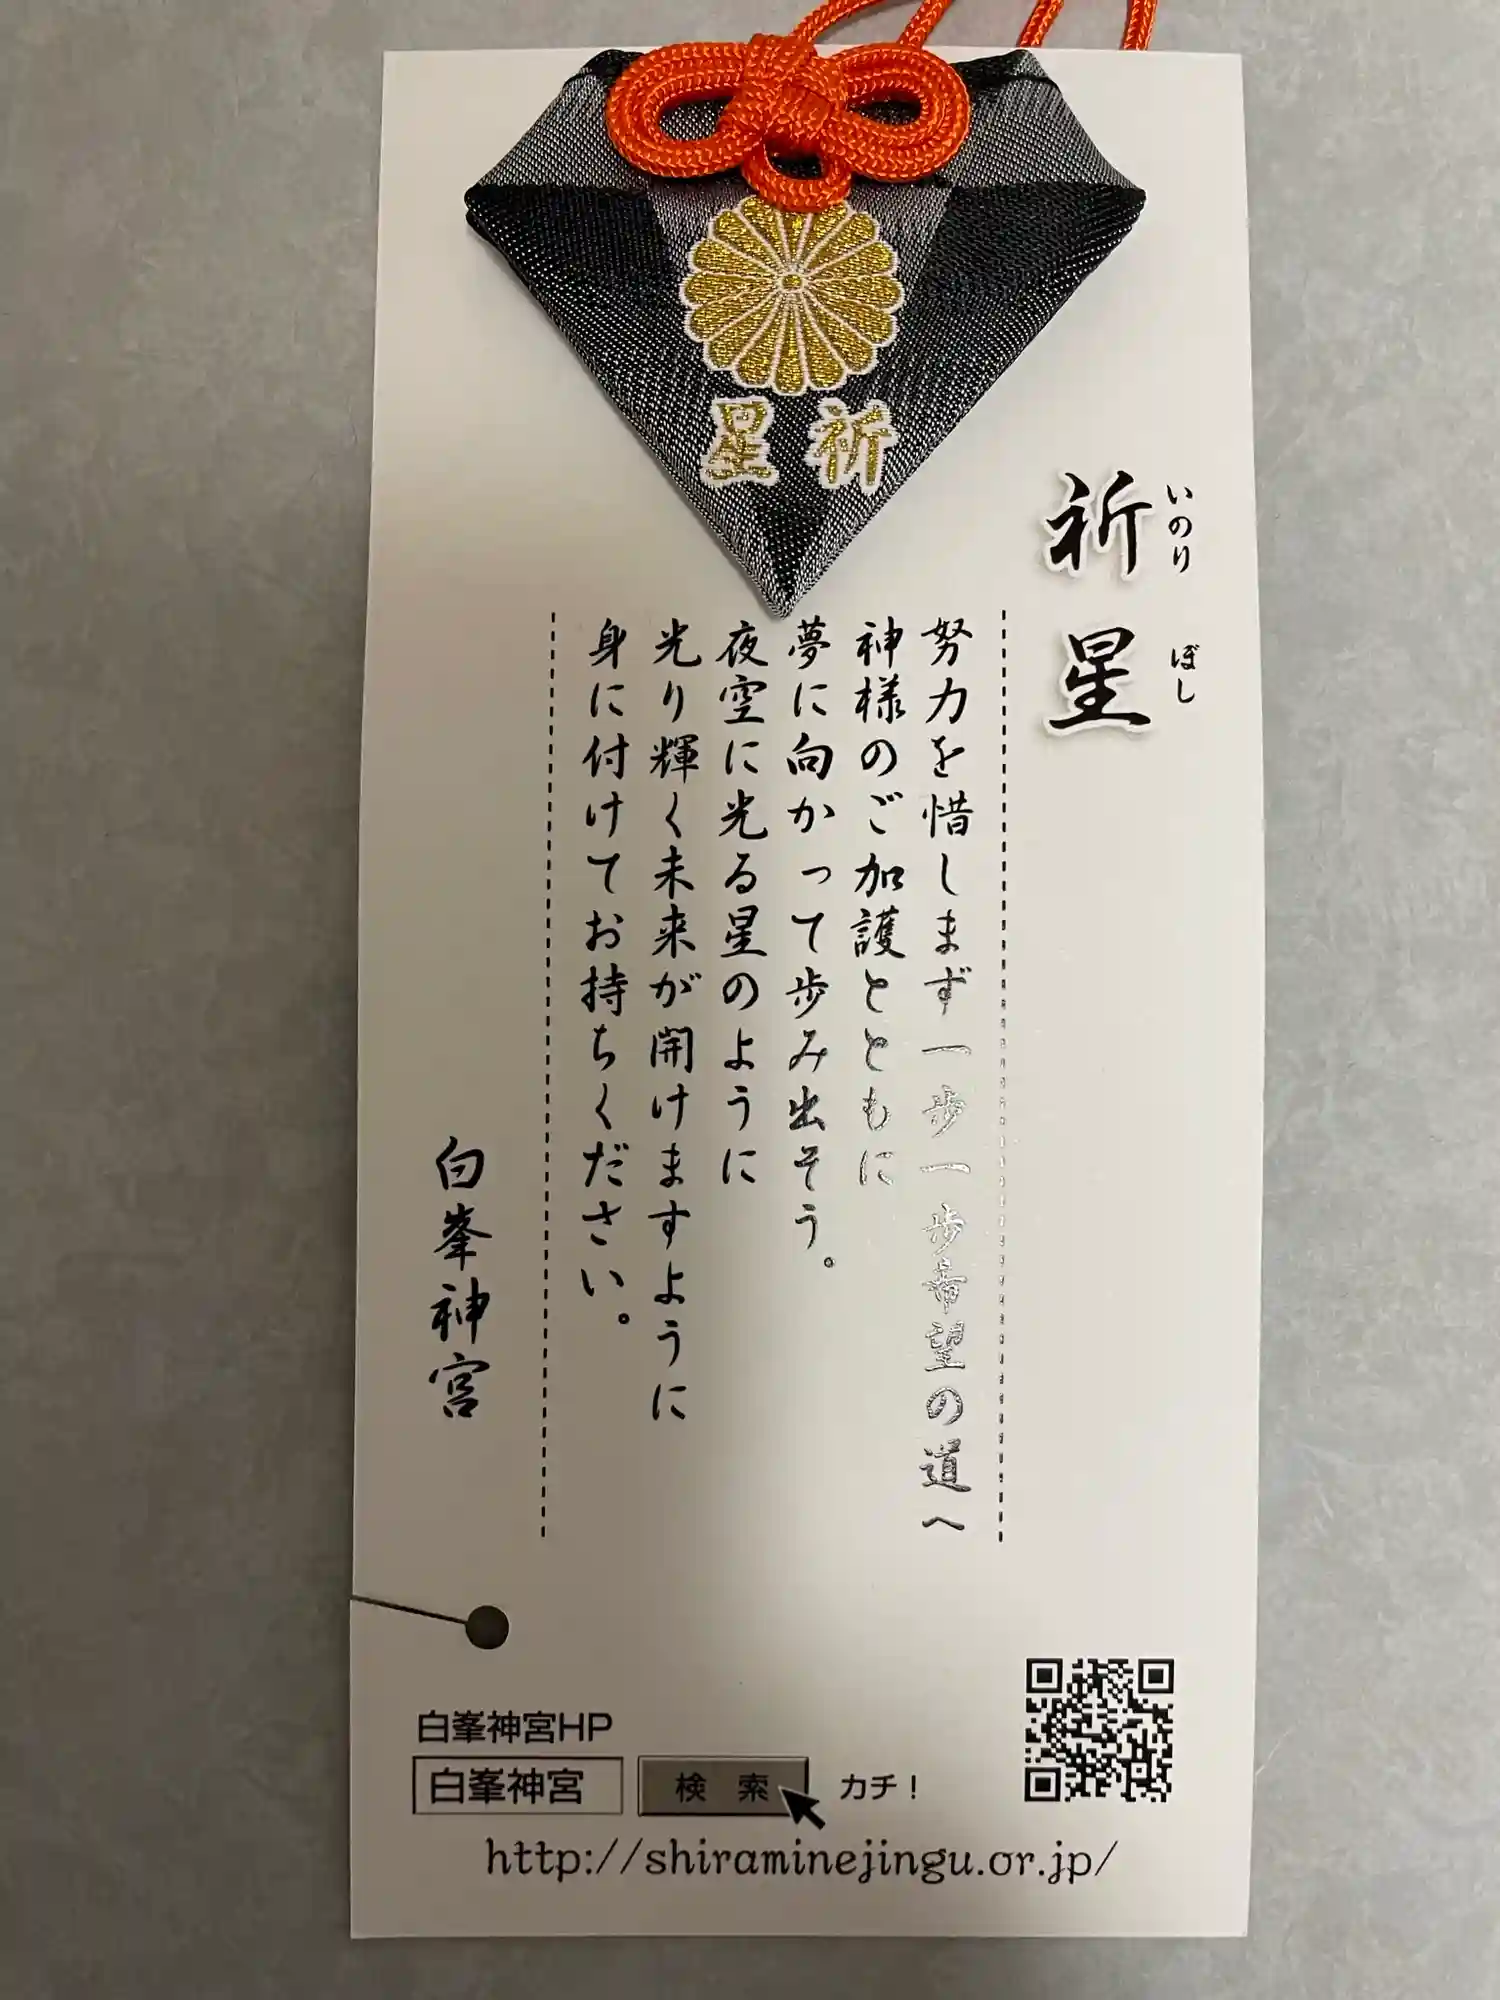 祈星
祈星
いのりぼし
努力を惜しまず一歩一歩希望の道へ
神様のご加護とともに
夢に向かって歩み出そう。
夜空に光る星のように
光り輝く未来が開けますように
身に付けてお持ちください。
白峯神宮
白峯神宮HP
白峯神宮 検索 カチ！
http://shiraminejingu.or.jp/